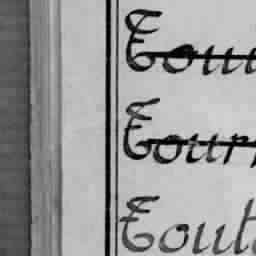 Tou
Tour
Tout